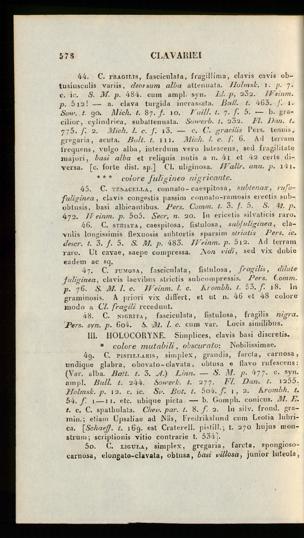 578 CLAVARIEI
44. C. FRAGILIS, fasciculata, fragillima, clavis cavis ob-
tusiusculis variis, deorsum albo attenuata. Holmsk. 1. p. 7.
c. ic. S. M. p. 484. cum ampl. syn. El. p. 232. Weinm.
p. 512! — a. clava turgida incrassata. Bull. t. 463. f. 1.
Sow. t. 90. Mich. t. 87. f. 10. Vaill. t. 7. f. 5. — b. gra-
cilior, cylindrica, subattenuata. Sowerb. t. 232. Fl. Dan. t.
775. f. 2. Mich. l. c. f. 13. — c. C. gracilis Pers. tenuis,
gregaria, acuta. Bolt. t. 111. Mich. l. c. f. 6. Ad terram
frequens, vulgo alba, interdum vero lutescens, sed fragilitate
majori, basi alba et reliquis notis a n. 41 et 42 certe di-
versa. [c. forte dist. sp.] Cl. uliginosa. Wallr. ann. p. 141.
*** colore fuligineo nigricante.
45. C. TENACELLA, connato-caespitosa, subtenax, rufo-
fuliginea, clavis congestis passim connato-ramosis erectis sub-
obtusis, basi albicantibus. Pers. Comm. t. 3. f. 5. S. M. p.
472. Weinm. p. 505. Secr. n. 20. In ericetis silvaticis raro.
46. C. STRIATA, caespitosa, fistulosa, subfuliginea, cla-
vulis longissimis flexuosis subtortis sparsim striatis. Pers. ic.
descr. t. 3. f. 5. S. M. p. 483. Weinm. p. 512. Ad terram
raro. Ut cavae, saepe compressa. Non vidi, sed vix dubie
eadem ac sq.
47. C. FUMOSA, fasciculata, fistulosa, fragilis, dilute
fuliginea, clavis laevibus strictis subcompressis. Pers. Comm.
p. 76. S. M. l. c. Weinm. l. c. Krombh. t. 53. f. 18. In
graminosis. A priori vix differt, et ut n. 46 et 48 colore
modo a Cl. fragili recedunt.
48. C. NIGRITA, fasciculata, fistulosa, fragilis nigra.
Pers. syn. p. 604. S. M. l. c. cum var. Locis similibus.
III. HOLOCORYNE. Simplices, clavis basi discretis.
* colore mutabili, obscurato: Nobilissimae.
49. C. PISTILLARIS, simplex, grandis, farcta, carnosa,
undique glabra, obovato-clavata, obtusa e flavo rufescens:
(Var. alba. Batt. t. 3. A) Linn. — S. M. p. 477. c. syn.
ampl. Bull. t. 244. Sowerb. t. 277. Fl. Dan. t. 1255.
Holmsk. p. 12. c. ic. Sv. Bot. t. 504. f. 1, 2. Krombh. t.
54. f. 1—11. etc. ubique picta. — b. Gomph. conicus. M. E.
t. c. C. spathulata. Chev. par. t. 8. f. 2. In silv. frond. gra-
min.: etiam Upsaliae ad Nås, Fredrikslund cum Leotia lubri-
ca. [Schaeff. t. 169. est Craterell. pistill.; t. 270 hujus mon-
strum; scriptionis vitio contrarie t. 534].
50. C. LIGULA, simplex, gregaria, farcta, spongioso-
carnosa, elongato-clavata, obtusa, basi villosa, junior luteola,